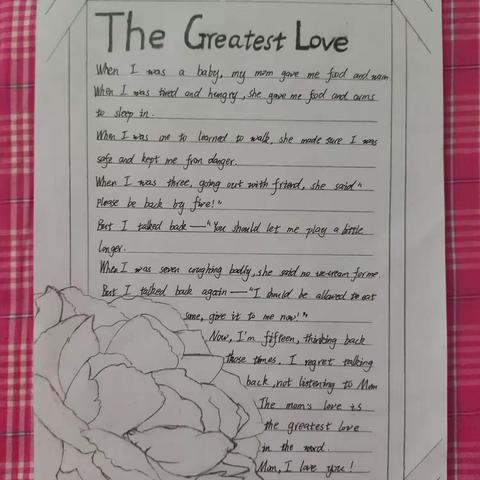 The Greatest Love
When I was a baby, my mom gave me food and warm
When I was tired and hungry, she gave me food and arms
to sleep in.
When I was one to learned to walk, she made sure I was
safe and kept me from danger.
When I was three, going out with friend, she said "
Please be back by five!"
But I talked back — "You should let me play a little
longer.
When I was seven coughing badly, she said no ice-cream for me.
But I talked back again — "I should be allowed to eat
some, give it to me now!"
Now, I'm fifteen, thinking back
those times, I regret talking
back, not listening to Mom
The mom's love is
the greatest love
in the word.
Mom, I love you!